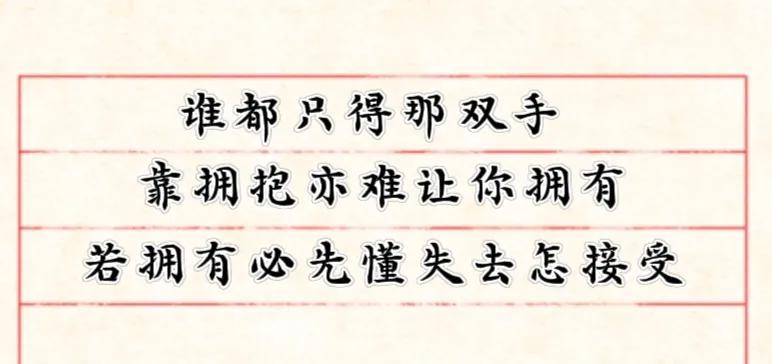 谁都只得那双手
靠拥抱亦难让你拥有
若拥有必先懂失去怎接受